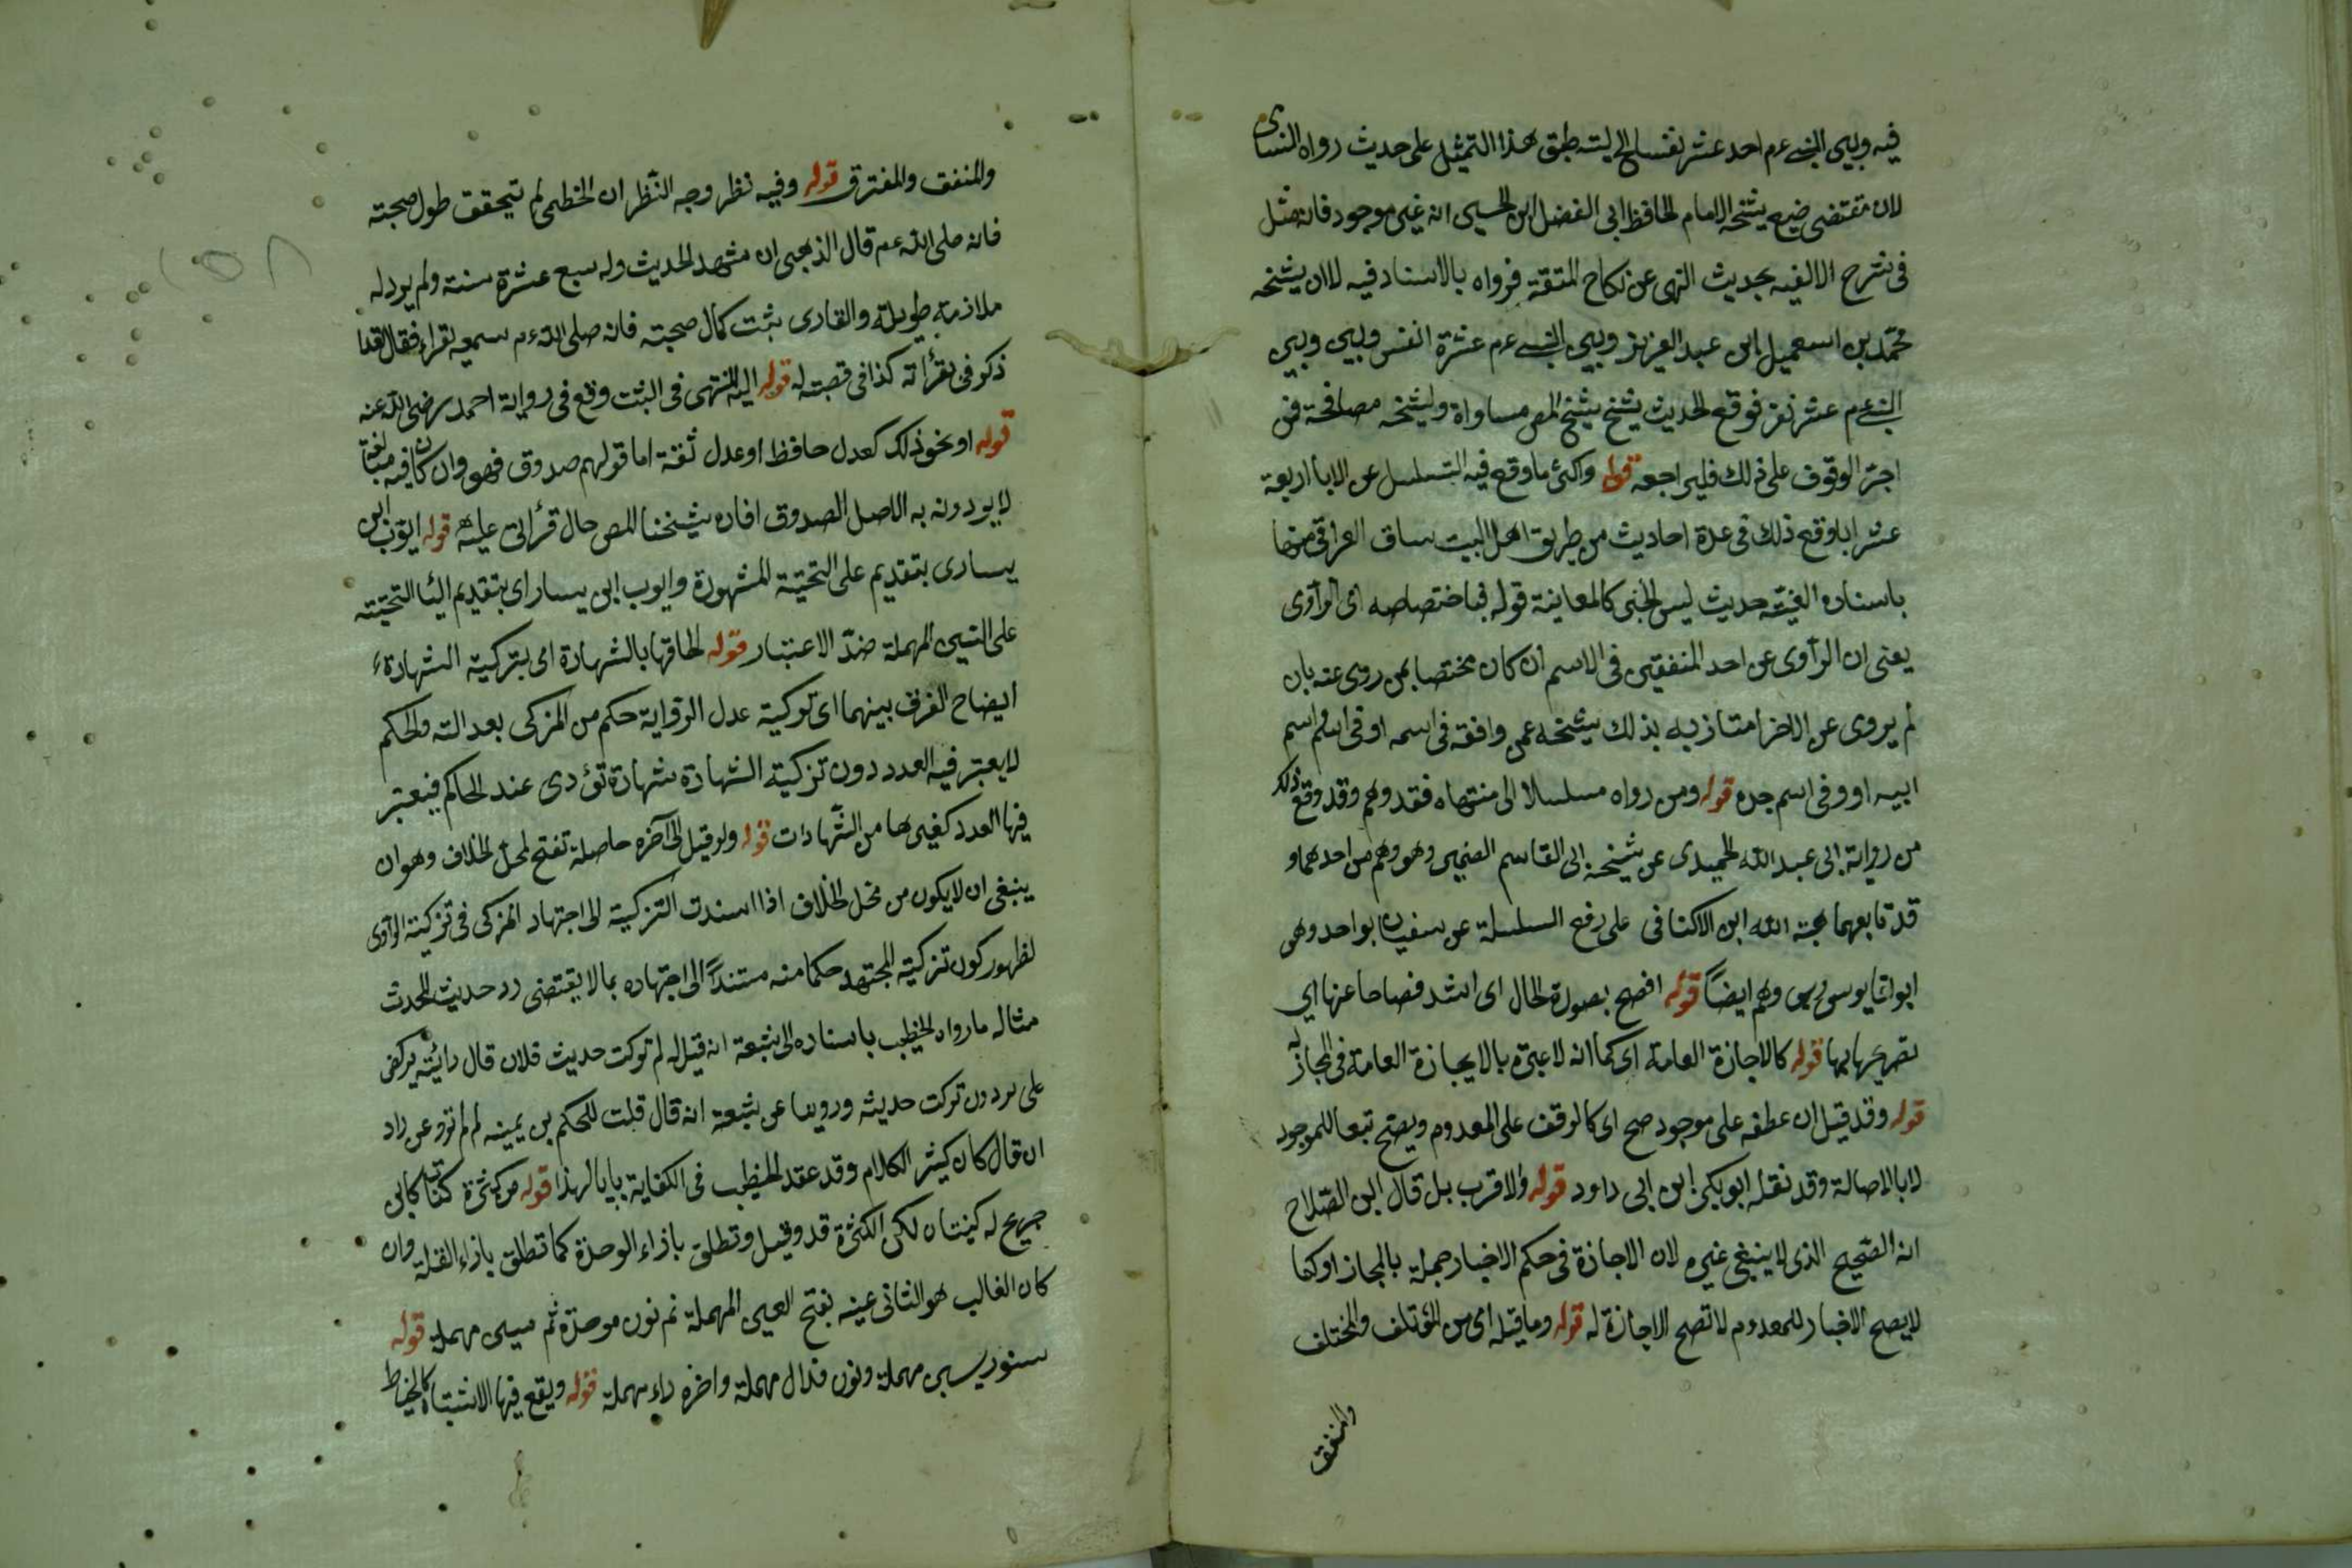 فيه وبين النبي عم احد عشر نفسا الخ ليته طبق هذا التمثيل على حديث رواه النسائى
لان مقتضى ضيع شيخه الامام الحافظ ابى الفضل ابن الحسين انه غير موجود فانه مثل
فى شرح الالفيه بحديث النهى عن نكاح المتعة فرواه بالاسناد فيه لاان شيخه
محمد بن اسمعيل ابن عبد العزيز وبين النبي عم عشرة انفس وبين وبين
النبي عم عشر نفر فوقع الحديث شيخ شيخ المص مساواة ولشيخه مصافحة فمن
اجتر الوقوف على ذلك فليراجعه قوله واكثر ما وقع فيه التسلسل عن الابا اربعة
عشر ابا وقع ذلك فى عدة احاديث من طريق اهل البيت ساق العراقى منها
باسناده الفيته حديث ليس الخبر كالمعاينة قوله فباختصاصه اى الرآوى
يعنى ان الرآوى عن احد المتفقين فى الاسم ان كان مختصا بمن روى عنه بان
لم يروى عن الاخر امتاز به بذلك شيخه عمن وافقه فى اسمه او فى اسم اسم
ابيه او وفى اسم جده قوله ومن رواه مسلسلا الى منتهاه فقد وهم وقد وقع ذلك
من رواية ابى عبد الله الحميدى عن شيخه ابى القاسم الضمير وهو وهم من احدهما و
قد تابعهما هبة الله ابن الاكنافى على رفع السلسلة عن سفيان بواحد وهى
ابو اثنا يوسى وبين وهم ايضاً قوله افصح بصورة الحال اى اشد فصاحا عنها اي
تصريحها بها قوله كالاجازة العامة اى كما انه لاعبرة بالايجازة العامة فى المجاز له
قوله وقد قيل ان عطفه على موجود صح اى كالوقف على المعدوم ويصح تبعا للموجود
لابالاصالة وقد نقله ابو بكر ابن ابى داود قوله والاقرب بل قال ابن الصّلاح
انه الصّحيح الذى لا ينبغى غيره لان الاجازة فى حكم الاخبار جملة بالمجاز او كما
لايصح الاخبار للمعدوم لاتصح الاجازة له قوله وما قبله اى من المؤتلف والمختلف
والمتفق
والمتفق والمفترق قوله وفيه نظر وجه النّظر ان الخطمى لم تيحقق طول صحبته
فانه صلى الله عم قال الذهبى ان مشهد الحديث وله سبع عشرة سنة ولم يرد له
ملازمة طويلة والقارى يثبت كمال صحبته فانه صلى الله عم سمعه يقراء فقال لقد
ذكر فى بقرأته كذا فى قصبته له قوله اليه المنتهى فى الثبت وقع فى رواية احمد رضى الله عنه
قوله او نحو ذلك كعدل حافظ او عدل ثقة اما قولهم صدوق فهو وان كان فيه مبالغة
لايودونه به الاصل الصدوق افاده شيخنا المص حال قرأتى عليه قوله ايوب ابن
يسارى بتقديم على التحتية المشهورة وايوب ابن يسار اى بتقديم اليا التحتية
على السين المهملة ضدّ الاعتبار قوله لحاقها بالشهادة اى بتركية الشهادة
ايضاح الفرق بينهما اى تركية عدل الرواية حكم من المزكى بعدالته والحكم
لايعتبر فيه العدد دون تزكية الشهادة شهادة تؤدى عند الحاكم فيعتبر
فيها العدد كغيرها من الشّهادات قوله ولو قيل الى آخره حاصلة تفتح لمحل الخلاف وهو ان
ينبغى ان لايكون من محل الخلاف اذا اسندت التزكية الى اجتهاد المزكى فى تزكية الراوى
لظهور كون تزكية المجتهد حكما منه مستنداً الى اجتهاده بما لا يقتضى رد حديث المحدث
مثاله ما رواه الخطيب باسناده الى شعبة انه قيل له لم تركت حديث فلان قال رايته يركض
على بردون تركت حديثه وروينا عن شعبة انه قال قلت للحكم بن يمينه لم لم ترو عن زاد
ان قال كان كثير الكلام وقد عقد الخطيب فى الكفاية بابا لهذا قوله من كثرة كناه كابن
جريح له كنيتان لكن الكثرة قد وقيل وتطلق بازاء الوحدة كما تطلق بازاء القلة وان
كان الغالب هو الثانى عينه بفتح العين المهملة ثم نون موحدة ثم سين مهملة قوله
سنور بسين مهملة ونون فدال مهملة واخره راء مهملة قوله ويقع فيها الاشتباه كالخياط